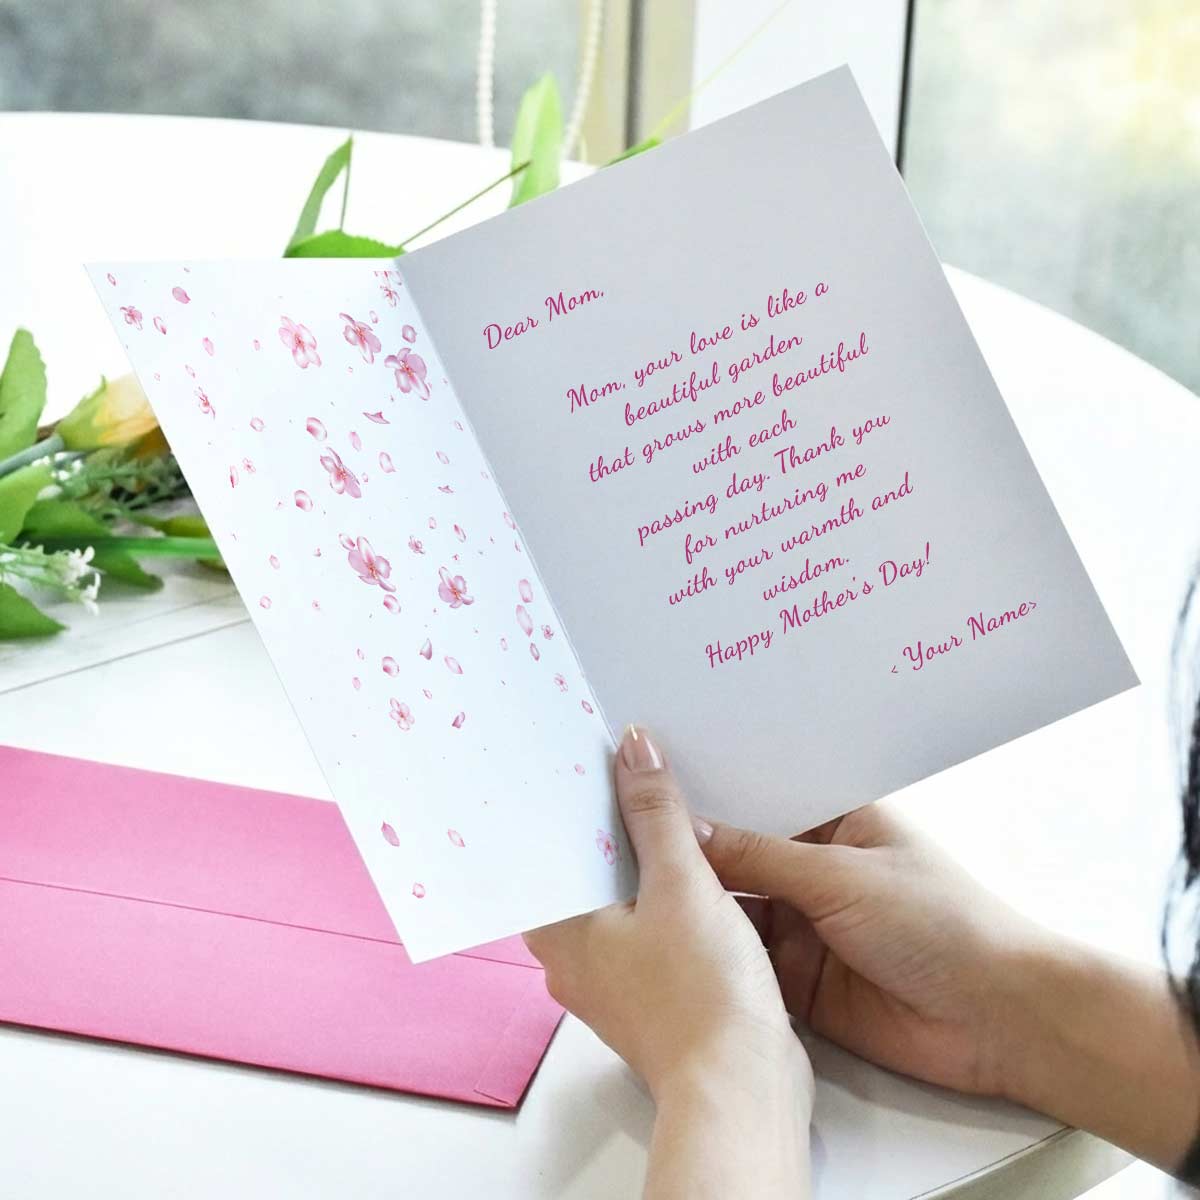 Dear Mom,
Mom, your love is like a
beautiful garden
that grows more beautiful
with each
passing day. Thank you
for nurturing me
with your warmth and
wisdom.
Happy Mother's Day!
< Your Name>